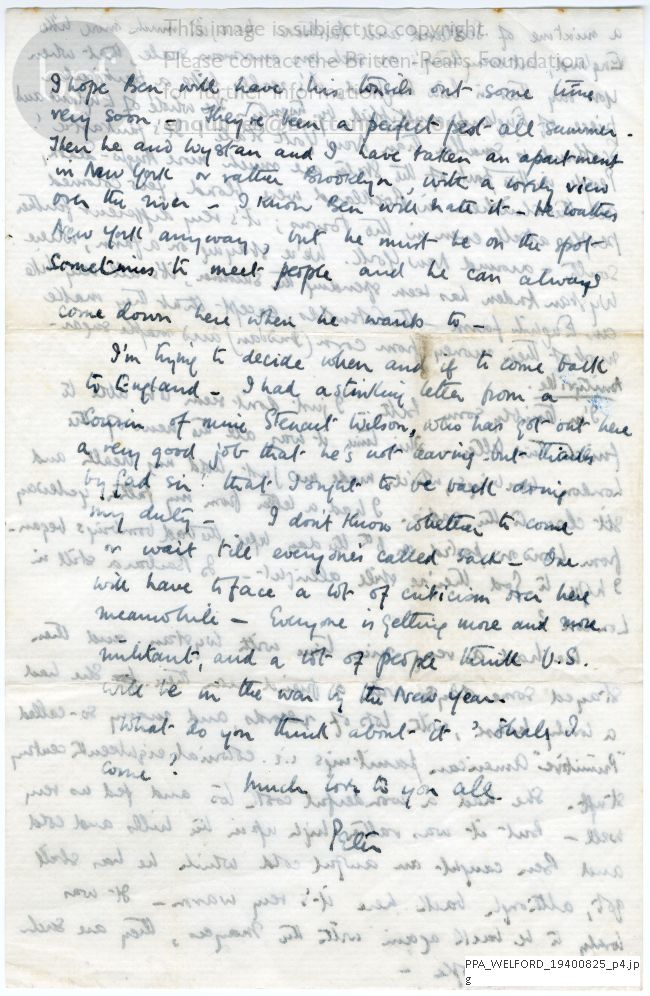 This image is subject to copyright.
Please contact the Britten-Pears Foundation
for further information.
I hope Ben will have his tonsils out some time
very soon – They've been a perfect pest all summer.
Then he and Wystan and I have taken an apartment
in New York or rather Brooklyn, with a lovely view
over the river – I know Ben will hate it – He loathes
New York anyway, but he must be on the spot
sometimes to meet people and he can always
come down here when he wants to –
I'm trying to decide when and if to come back
to England – I had a stinking letter from a
cousin of mine Steuart Wilson, who has got out here
a very good job that he's not leaving but thinks
by gad sir! that I ought to be back doing
my duty – I don't know whether to come
or wait till everyone's called back – One
will have to face a lot of criticism over here
meanwhile – Everyone is getting more and more
militant, and a lot of people think U.S.
will be in the war by the New Year.
What do you think about it? Shall I
come?
Much love to you all
Peter
PPA_WELFORD_19400825_p4.jp
g